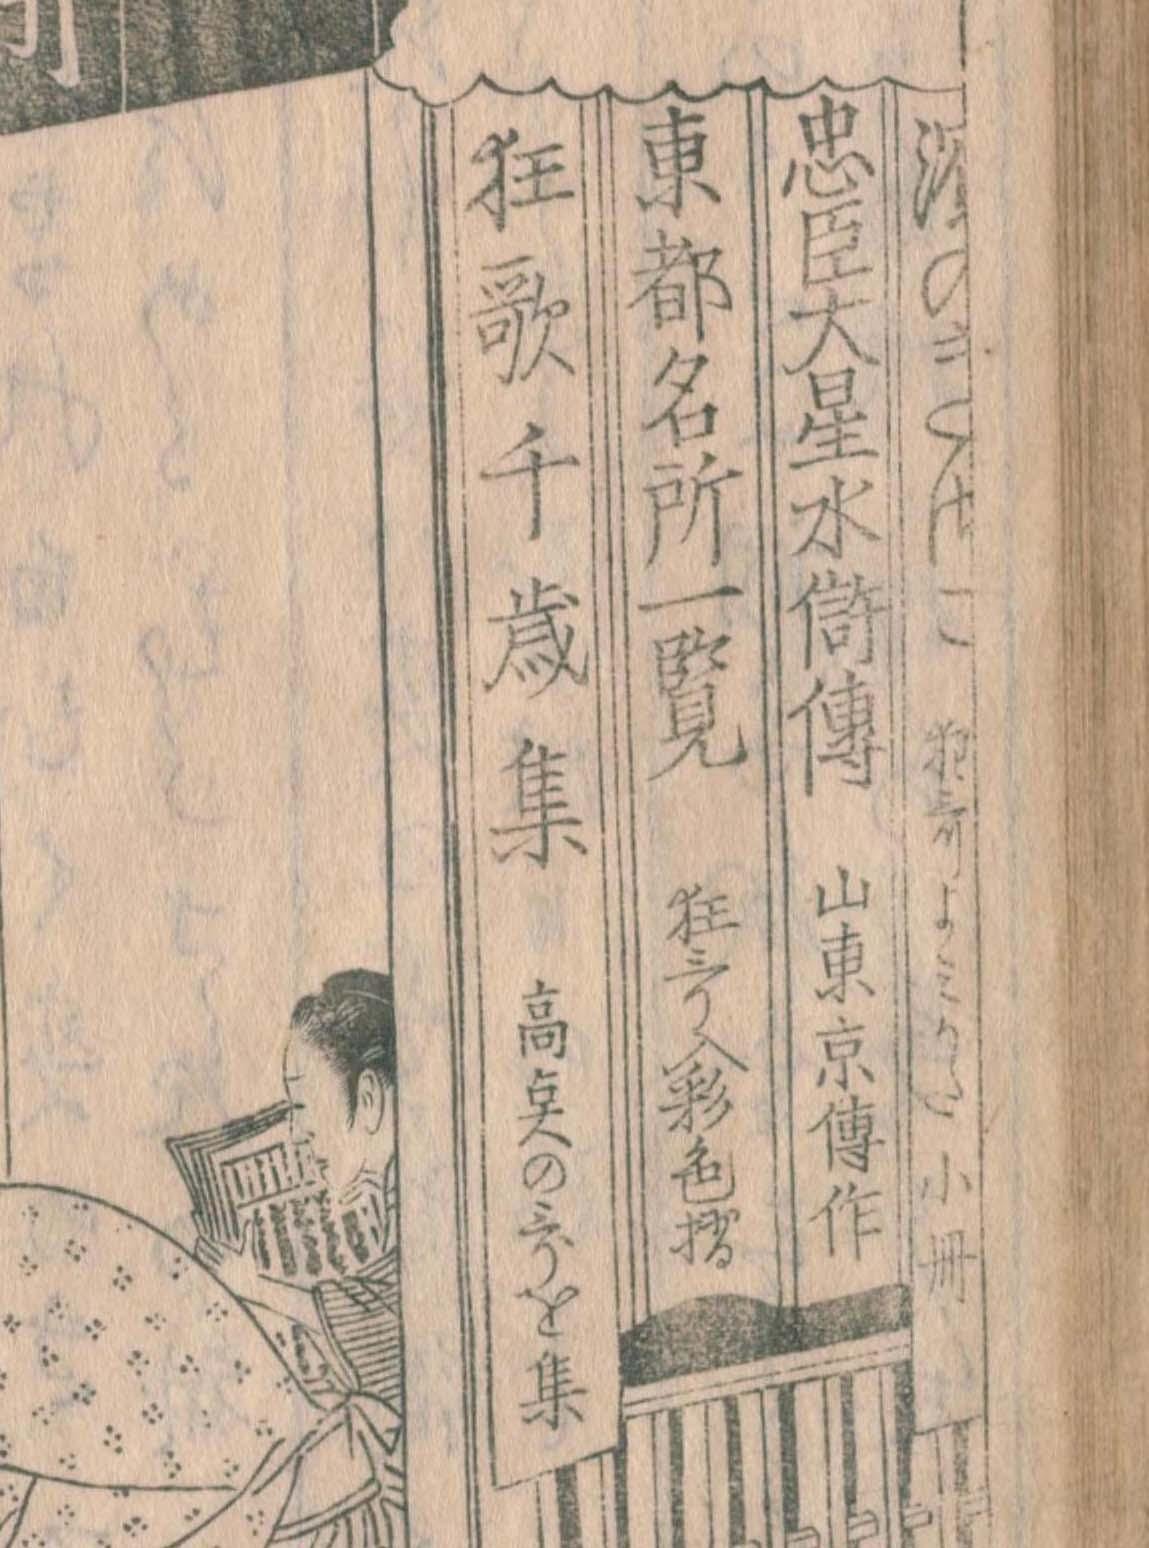 濱のきさごこ 狂哥よみかた 小冊
忠臣大星水滸傳 山東京傳作
東都名所一覧 狂哥入彩色摺
狂歌千歳集 高点のうたを集